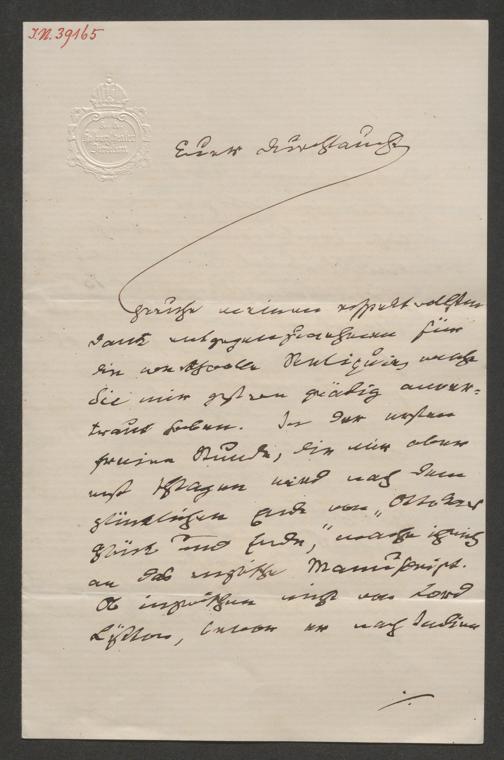 I.N. 39165
Euer Durchlaucht
geruhe meinen respektvollsten
Dank entgegenzunehmen für
die werthvolle Reliquie, welche
Sie mir gestern gnädig anver-
traut haben. In der ersten
freien Stunde, die mir aber
erst schlagen wird nach dem
glücklichen Ende von „Ottokars
Glück und Ende,“ mache ich mich
an das Manuskript.
Ob inzwischen nicht von Lord
Lytton, bevor er nach Indien